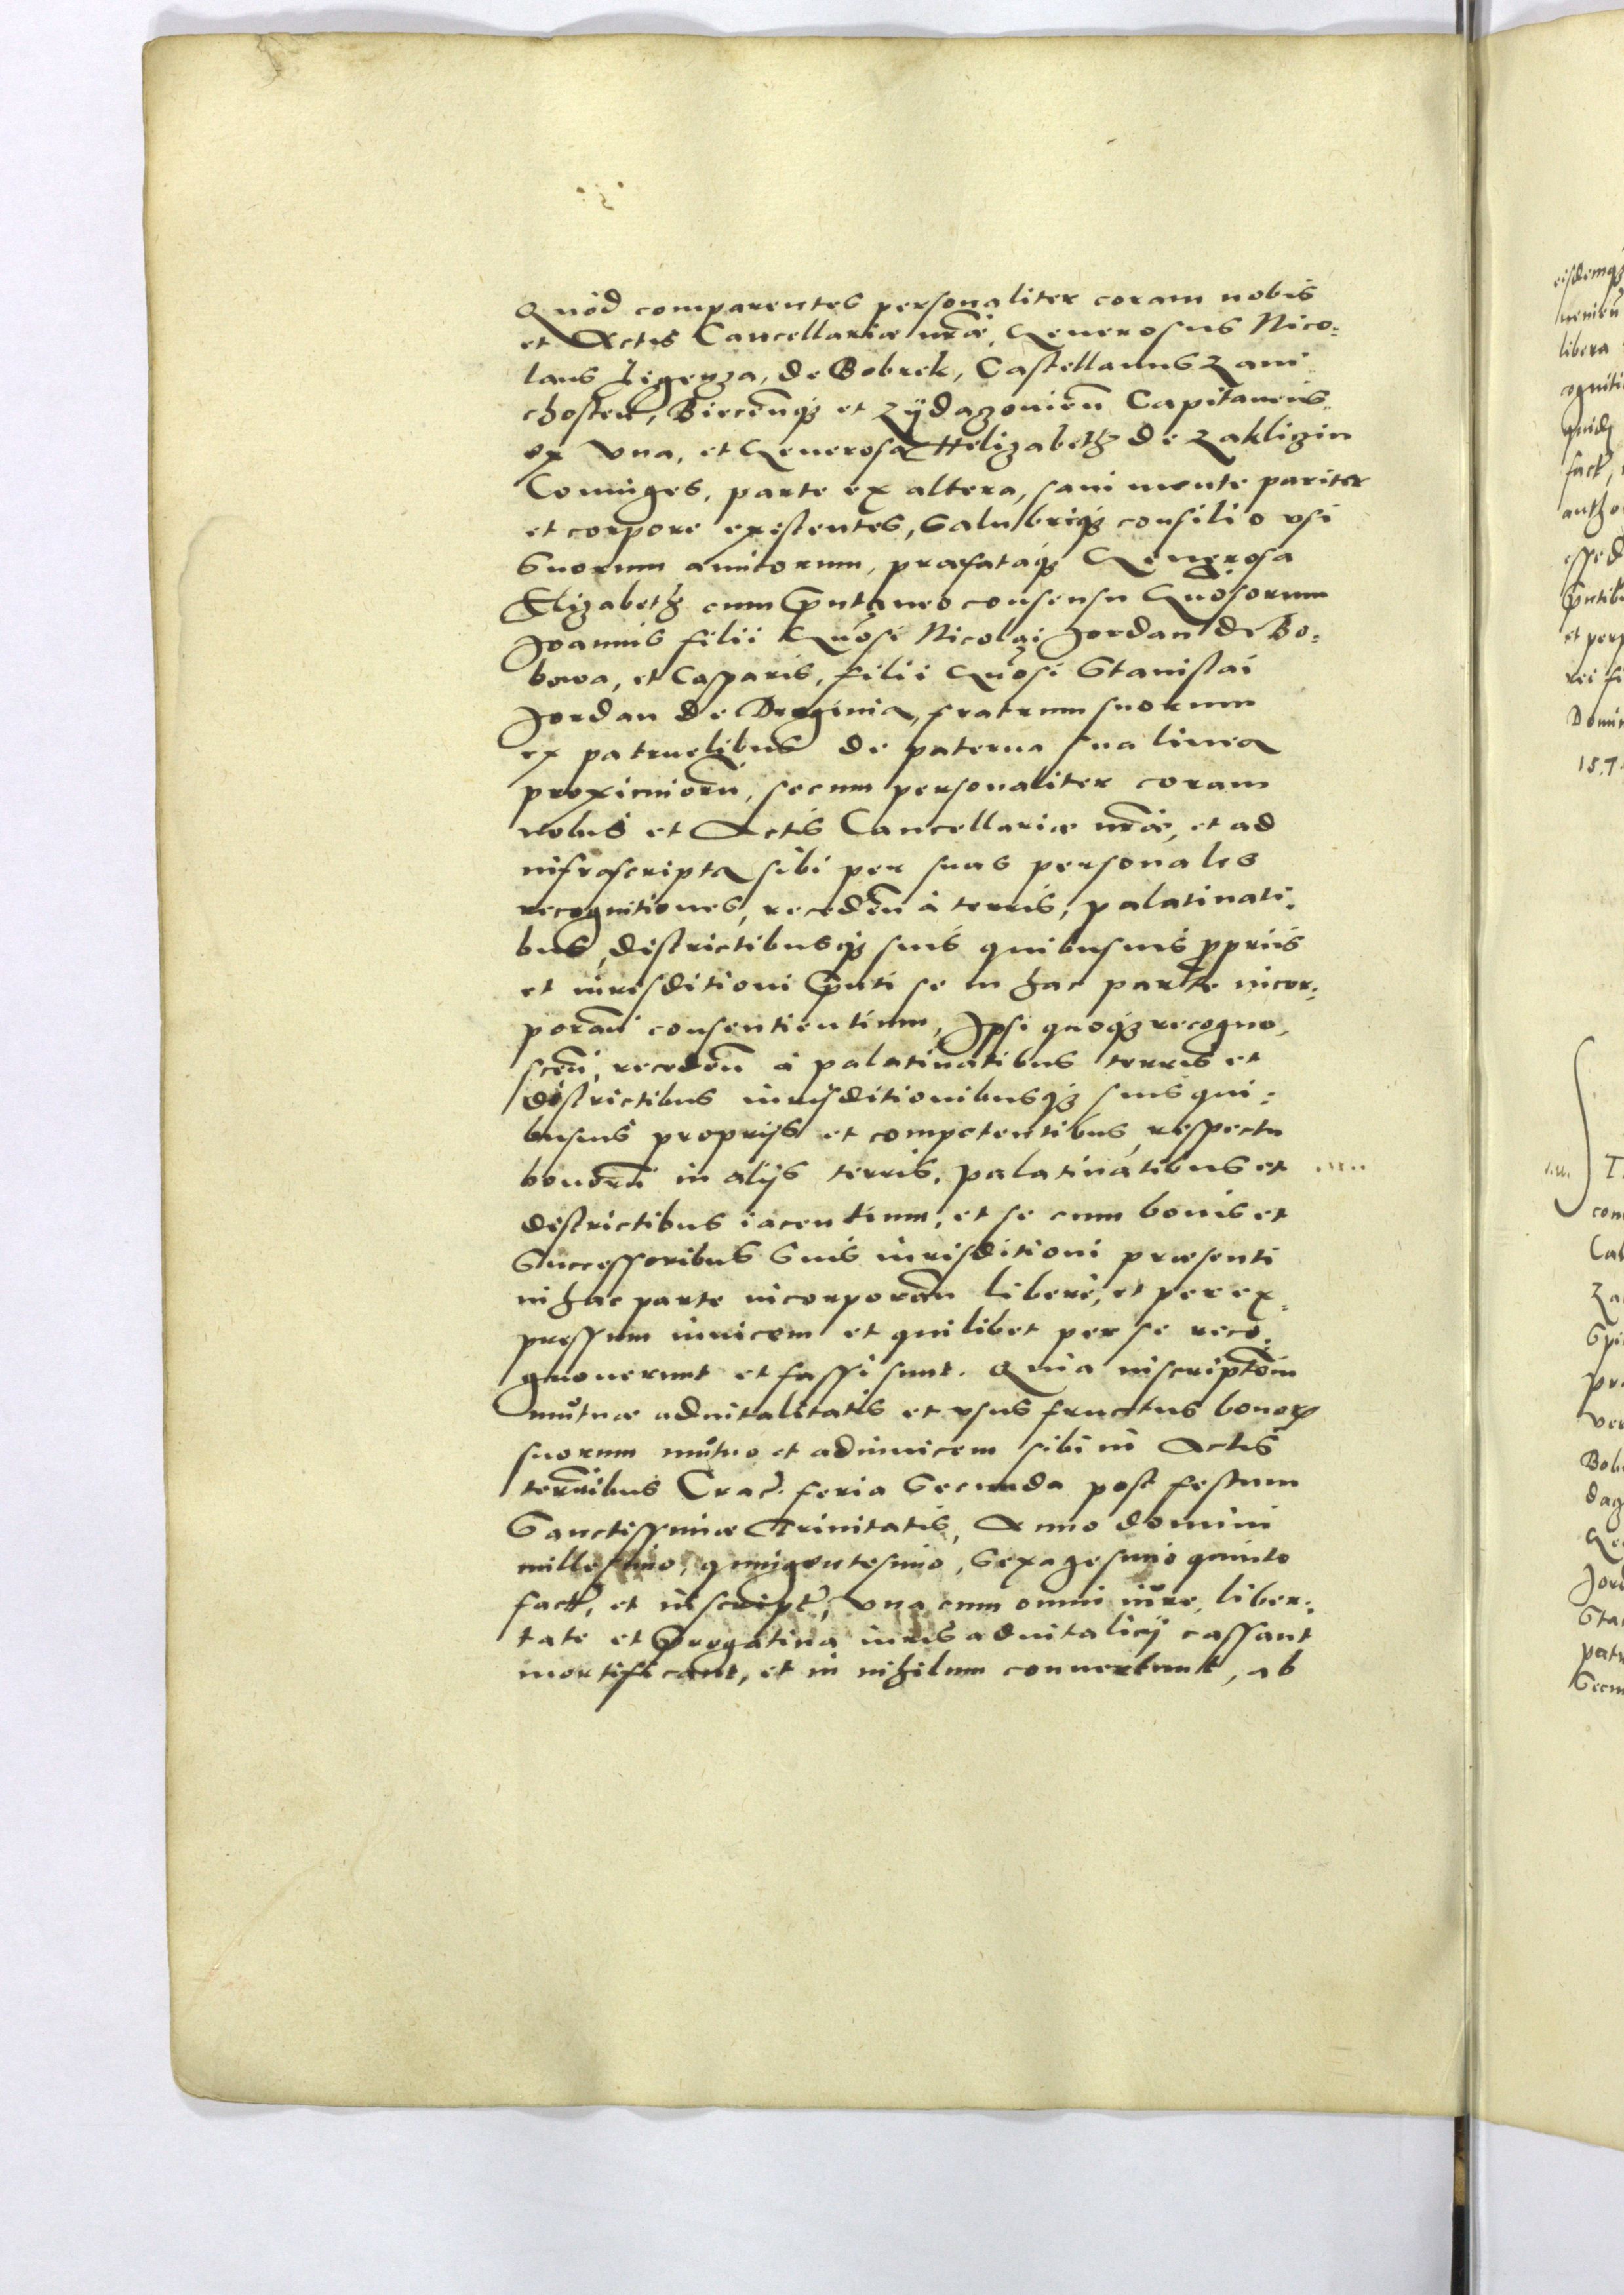 Quod comparentes personaliter coram nobis
et Actis Cancellariæ nr̃æ, Generosus Nico=
laus Ligęza, de Bobrek, Castellanus Zaui
chosteñ, Biecenq́ꝫ et Zydaczovieñ Capitaneus
ex vna, et Generosa Helizabeth de Zakliczin
Coniuges, parte ex altera, sani mente pariter
et corpore existentes, Salubriq́ꝫ consilio vsi
Suorum amicorum, præfataq́ꝫ Generosa
Elizabeth cum Spontaneo consensu Gnõsorum
Joannis filii Gnõsi Nicolai Jordan de Bo=
bowa, et Casparis, filii Gnõsi Stanislai
Jordan de Droginia, fratrum suorum
ex patruelibus de paterna sua linea
proximiorũ, secum personaliter coram
nobis et Actis Cancellariæ nr̃æ, et ad
infrascripta sibi per suas personales
recognitiones, recedeñ à terris, palatinati=
bus, districtibusq́ꝫ suis quibusuis ꝓpriis
et iurisditioni Pñti se in hac parte incor=
porañ consentientium, Ipsi quoq́ꝫ recogno=
sceñ, recedeñ à palatinatibus terris et
districtibus iurisditionibusq́ꝫ suis qui=
busuis proprijs et competentibus, respectu
bonorũ in alijs terris, palatinatibus et
districtibus iacentium, et se cum bonis et
Successoribus Suis iurisditioni præsenti
in hac parte incorporañ liberè, et per ex=
pressum inuicem et quilibet per se reco=
gnouerunt et fassi sunt. Quia inscriptõm
mutuæ aduitalitatis et vsus fructus bonoꝝ
suorum mutuo et adinuicem sibi in Actis
terrẽibus Crac̃. feria Secunda post festum
Sanctissimæ Trinitatis, Anno domini
millesimo, quingentesimo, Sexagesimo quinto
fact̃, et inscript̃, vna cum omni iure, liber=
tate et Prerogatiua iuris aduitalicij cassant
mortificant, et in nihilum conuertunt, ab